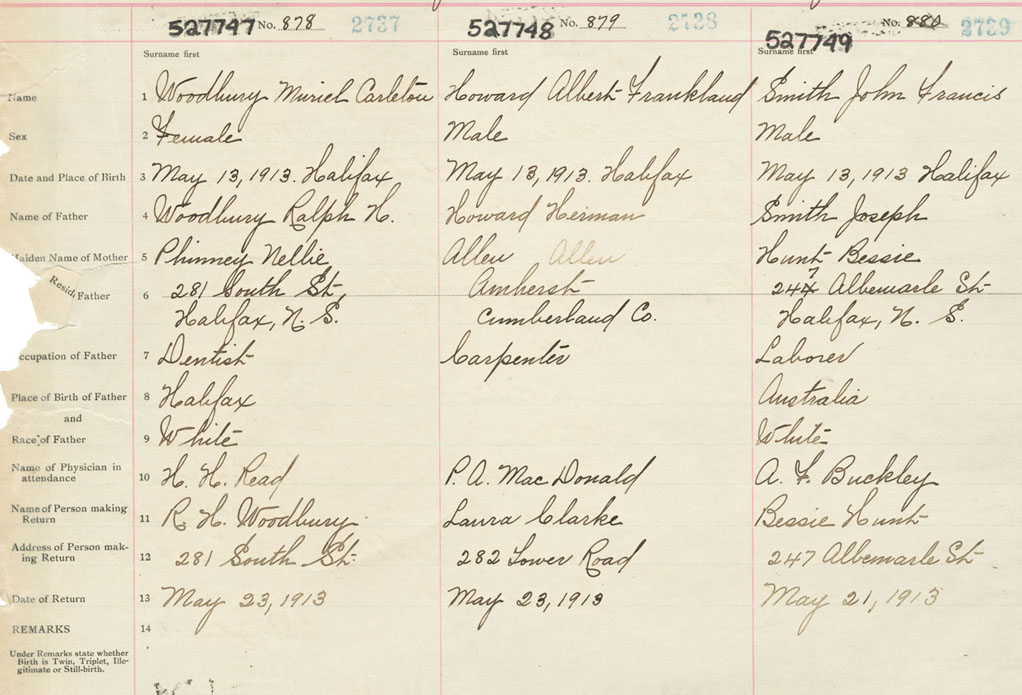 527747 No. 878 2737 527748 No. 879 2738 527749 No. 880 2739
Surname first Surname first Surname first
Name 1 Woodbury Muriel Carleton Howard Albert Frankland Smith John Francis
Sex 2 Female Male Male
Date and Place of Birth 3 May 13, 1913. Halifax May 13, 1913. Halifax May 13, 1913 Halifax
Name of Father 4 Woodbury Ralph H. Howard Herman Smith Joseph
Maiden Name of Mother 5 Phinney Nellie Allen Allen Hunt Bessie
Resid. Father 6 281 South St, Amherst 247 Albemarle St
Halifax, N. S. Cumberland Co. Halifax, N. S.
ccupation of Father 7 Dentist Carpenter Laborer
Place of Birth of Father 8 Halifax Australia
and
Race of Father 9 White White
Name of Physician in
attendance 10 H. H. Read P. A. MacDonald A. F. Buckley
Name of Person making
Return 11 R. H. Woodbury Laura Clarke Bessie Hunt
Address of Person mak-
ing Return 12 281 South St. 282 Tower Road 247 Albemarle St
Date of Return 13 May 23, 1913 May 23, 1913 May 21, 1913
REMARKS 14
Under Remarks state whether
Birth is Twin, Triplet, Ille-
gitimate or Still-birth.